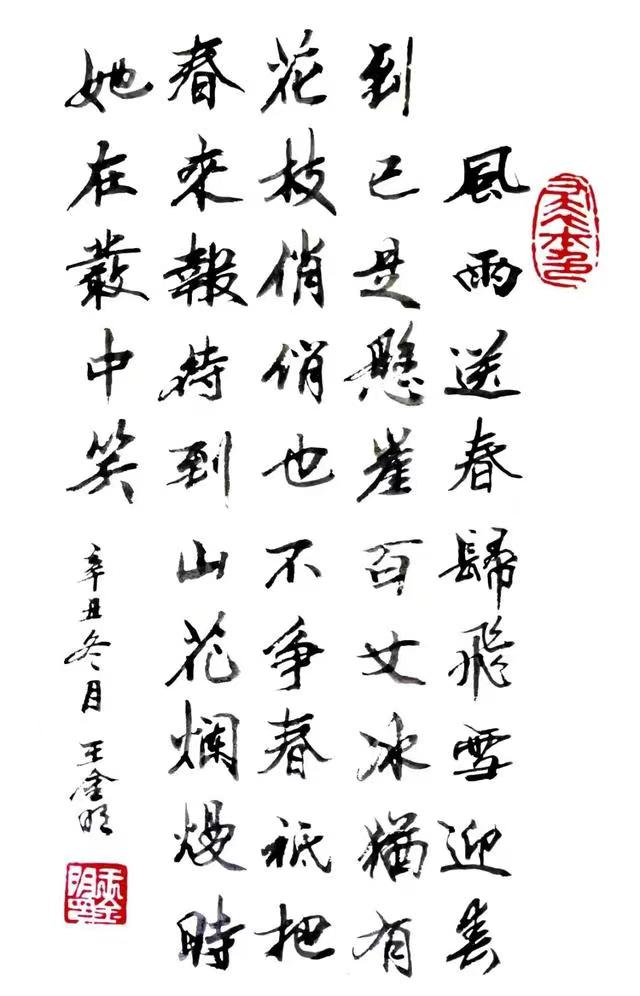 風雨送春歸飛雪迎春
到已是懸崖百丈冰猶有
花枝俏俏也不爭春祗把
春來報待到山花爛熳時
她在叢中笑
辛丑冬月王金明